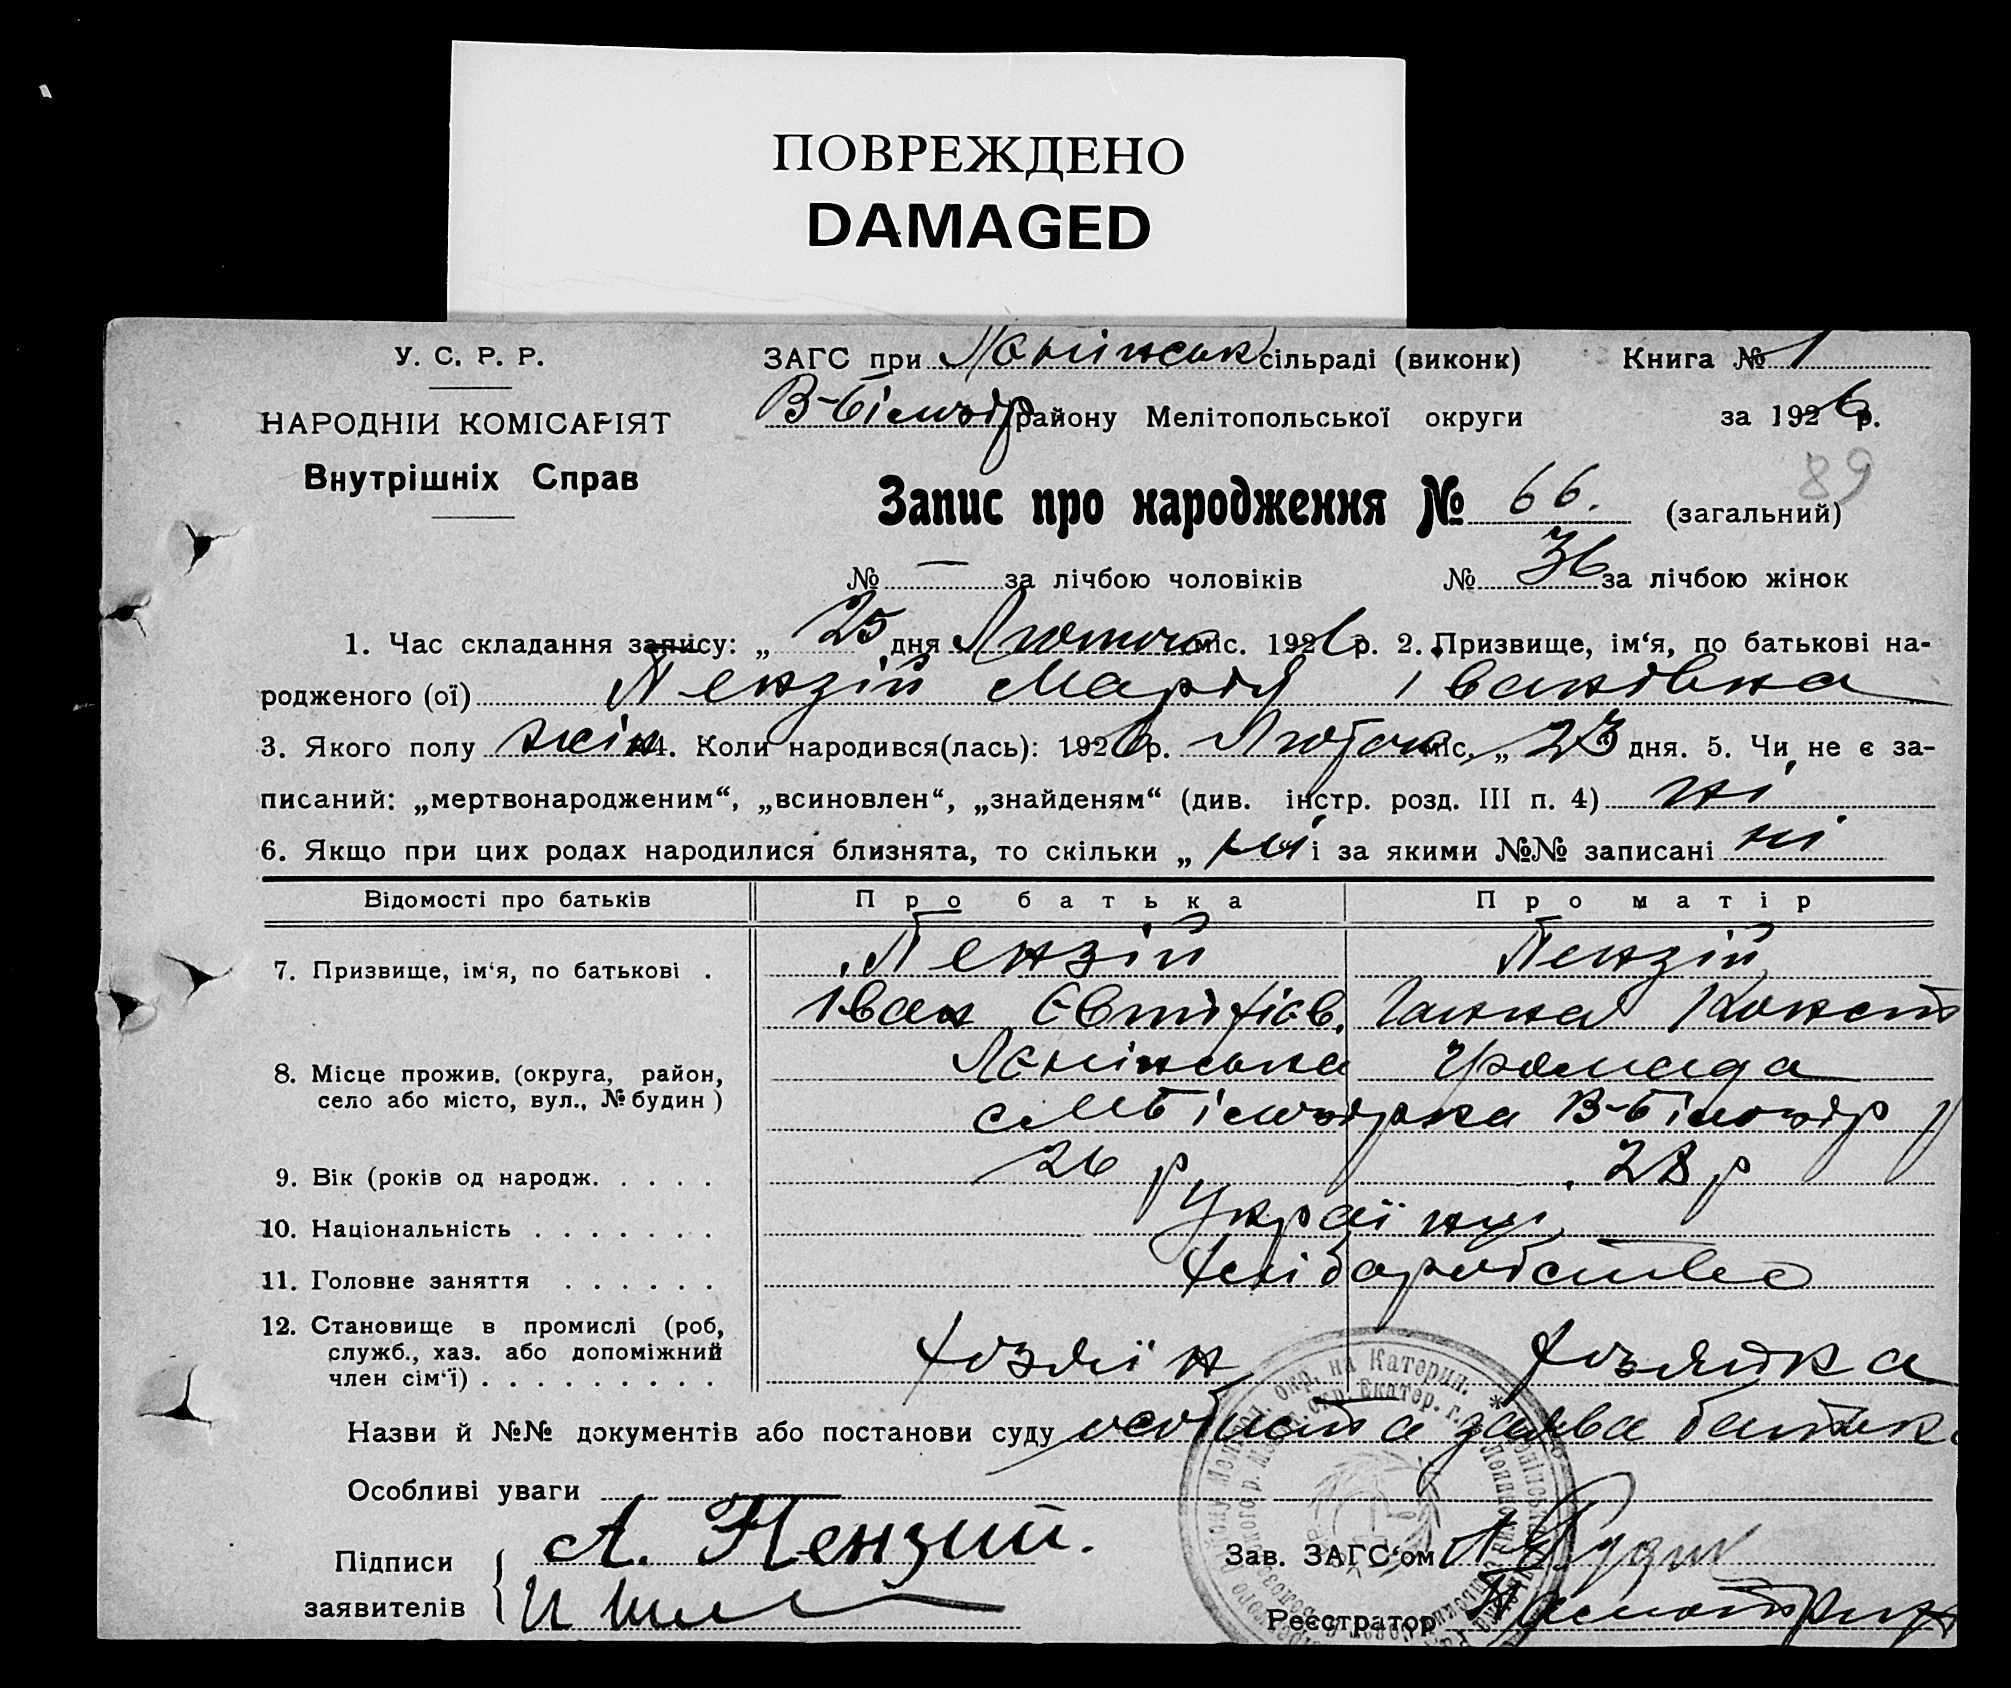 ПОВРЕЖДЕНО
DAMAGED
У. С. Р. Р.
НАРОДНІЙ КОМІСАРІЯТ
Внутрішніх Справ
ЗАГС при Ленінськ сільраді (виконк) Книга № 1
В-Білозір району Мелітопольської округи за 1926 р.
89
Запис про народження № 66. (загальний)
№ — за лічбою чоловіків № 36 за лічбою жінок
1. Час складання запису: „ 25 дня Лютого міс. 1926 р. 2. Призвище, ім‘я, по батькові на-
родженого (ої) Пензій Марія Іванівна
3. Якого полу жін 4. Коли народився(лась): 1926 р. Лютого міс. „ 23 дня. 5. Чи не є за-
писаний: „мертвонародженим“, „всиновлен“, „знайденям“ (див. інстр. розд. III п. 4) ні
6. Якщо при цих родах народилися близнята, то скільки „ ні і за якими №№ записані ні
Відомості про батьків Про батька Про матір
7. Призвище, ім‘я, по батькові . Пензій Пензій
Іван Євтифієв. Ганна Конст
8. Місце прожив. (округа, район, Ленінська громада
село або місто, вул., № будин) с. М Білозірка В-Білозір р
9. Вік (років од народж. . . . . 26 р 28 р
10. Національність . . . . . . . Українці
11. Головне заняття . . . . . . Хліборобство
12. Становище в промислі (роб,
служб., хаз. або допоміжний хозяїн хозяйка
член сім‘ї) . . . . . . . . .
Назви й №№ документів або постанови суду особиста заява батьк
Особливі уваги
Підписи А. Пензий. Зав. ЗАГС‘ом
заявителів Реєстратор